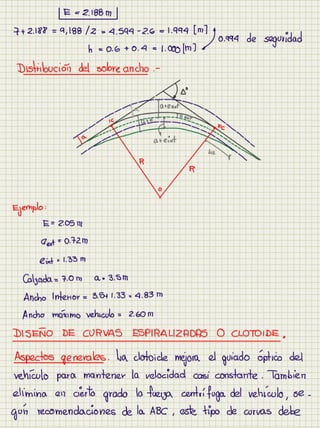 E = 2.188 m
7+2.188 = 9,188 / 2 = 4.594 - 2.6 = 1.994 [m]
h = 0.6 + 0.4 = 1.000 [m]
0.994 de seguridad
Distribución del sobreancho.-
Δ°
a+eext
a+eint
R
R
O
Ejemplo:
E = 2.05 m
eext = 0.72 m
eint = 1.33 m
Calzada = 7.0 m a = 3.5m
Ancho Interior = 3.5+1.33 = 4.83 m
Ancho máximo vehiculo = 2.60 m
DISEÑO DE CURVAS ESPIRALIZADAS O CLOTOIDE.
Aspectos generales. La clotoide mejora el guiado óptico del
vehículo para mantener la velocidad casi constante. Tambien
elimina en cierto grado la fuerza centrífuga del vehiculo, se-
gún recomendaciones de la ABC, este tipo de curvas debe